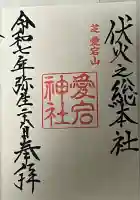 伏火之総本社
芝 愛宕山
愛宕神社
令和七年弥生二八日奉拝